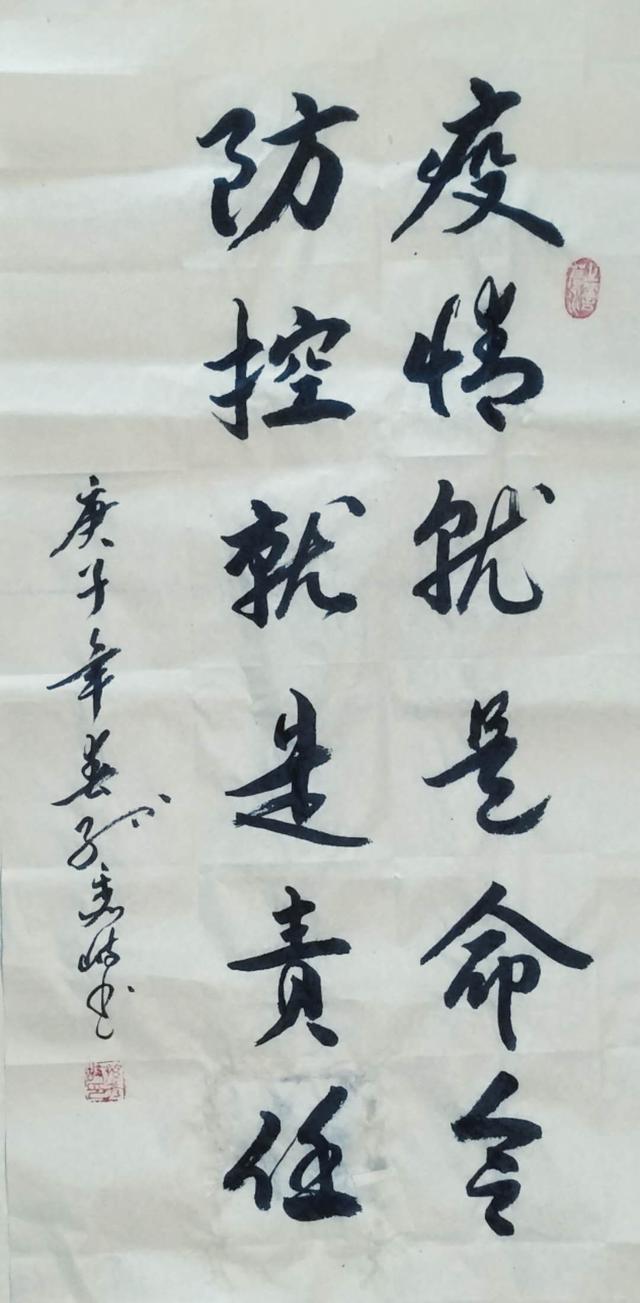 疫情就是命令
防控就是责任
庚子年春孙
书